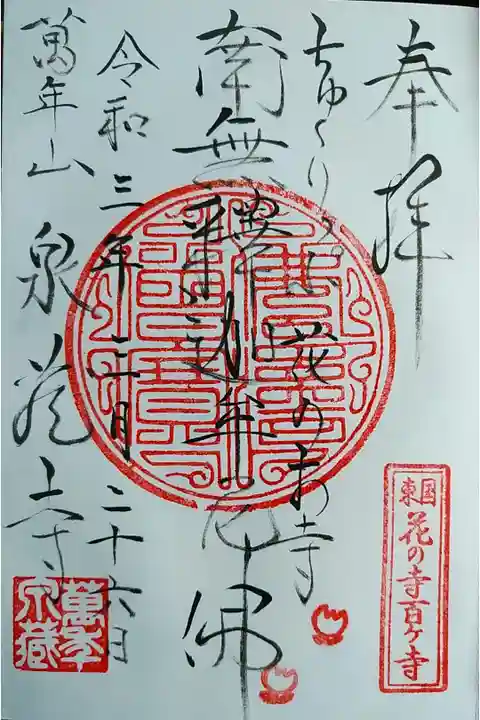 奉拝
ちゅーりっぷ 花のお寺
南無釋迦牟尼佛
令和三年三月二十六日
萬年山 泉蔵寺
東国
花の寺百ヶ寺
萬年
泉蔵